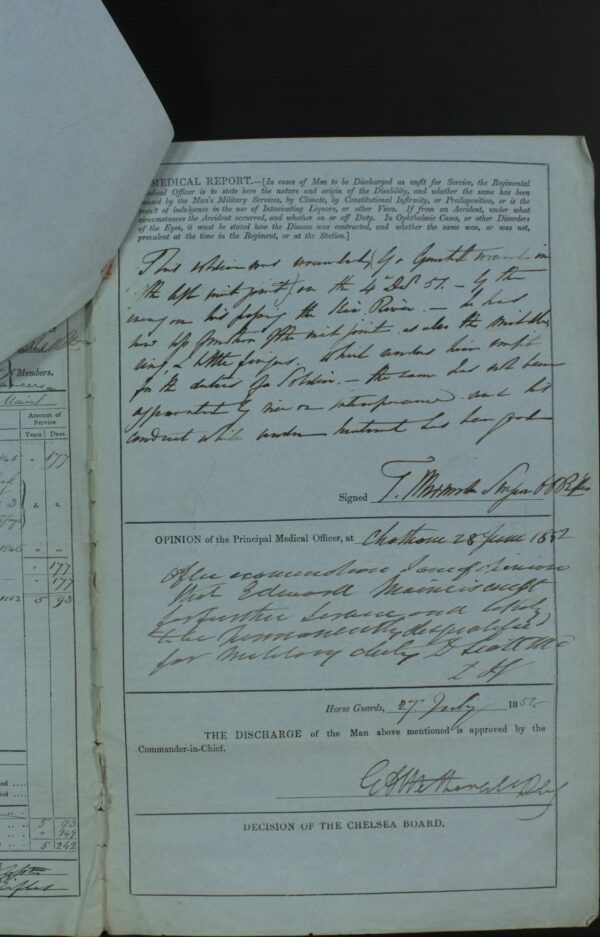 MEDICAL REPORT.—[In cases of Men to be Discharged as unfit for Service, the Regimental
Medical Officer is to state here the nature and origin of the Disability, and whether the same has been
caused by the Man's Military Services, by Climate, by Constitutional Infirmity, or Predisposition, or is the
result of indulgence in the use of Intoxicating Liquors, or other Vices. If from an Accident, under what
circumstances the Accident occurred, and whether on or off Duty. In Ophthalmic Cases, or other Disorders
of the Eyes, it must be stated how the Disease was contracted, and whether the same was, or was not,
prevalent at the time in the Regiment, or at the Station.]
This soldier was wounded (by a Gunshot wound in
the left wrist joint) on the 4th Decr 51. – by the
enemy on his the Kei River. – he has
now of the wrist joint as also the middle,
ring, & little fingers. Which renders him unfit
for the duties of a Soldier. – the same has not been
by vice or intemperance and his
conduct while under treatment has been good
Signed T. Surgeon
OPINION of the Principal Medical Officer, at Chatham 28 June 1852
After examination I am of opinion
that Edward is unfit
for further Service and likely
to be permanently disqualified
for military duty D Scott MD
Horse Guards, 27 July 1852
THE DISCHARGE of the Man above mentioned is approved by the
Commander-in-Chief.
DECISION OF THE CHELSEA BOARD.
of Members.
Amount of
Service
Years Days
177
1846
177
177
1852 5 93
5 93
149
5 242
Rifles